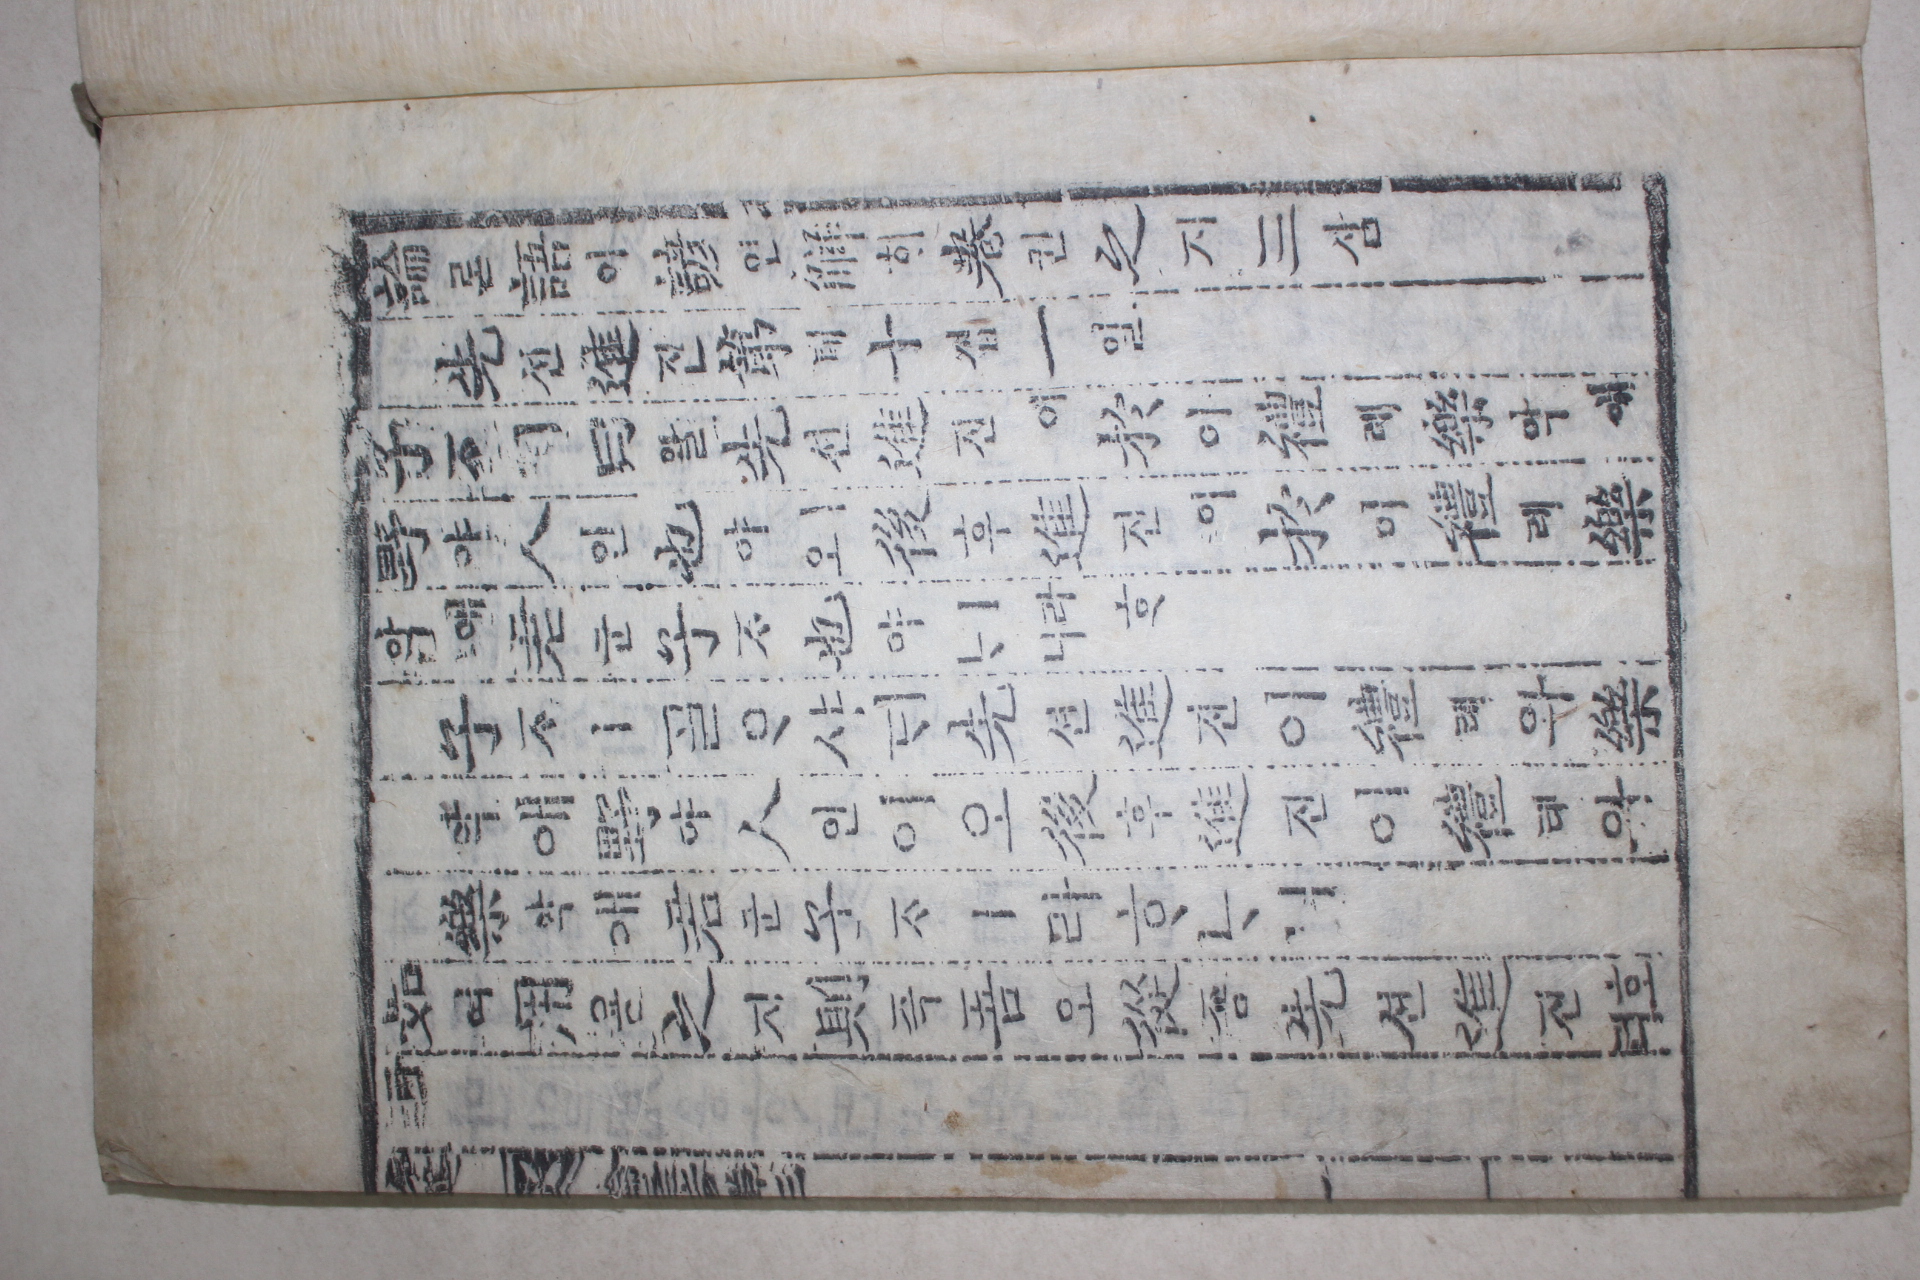 論론語어諺언解해卷권之지三삼
先션進진第뎨十십一일
子ᄌᆞㅣ曰왈先션進진이於어禮례樂악애
野야人인也야ㅣ오後후進진이於어禮례樂
악애君군子ᄌᆞ也야ㅣ라ᄒᆞᄂᆞ니
子ᄌᆞㅣᄀᆞᆯᄋᆞ샤ᄃᆡ先션進진이禮례와樂
악애野야人인이오後후進진이禮례와
樂악애君군子ᄌᆞㅣ라ᄒᆞᄂᆞ니
如여用용之지則즉吾오從죵先션進진호